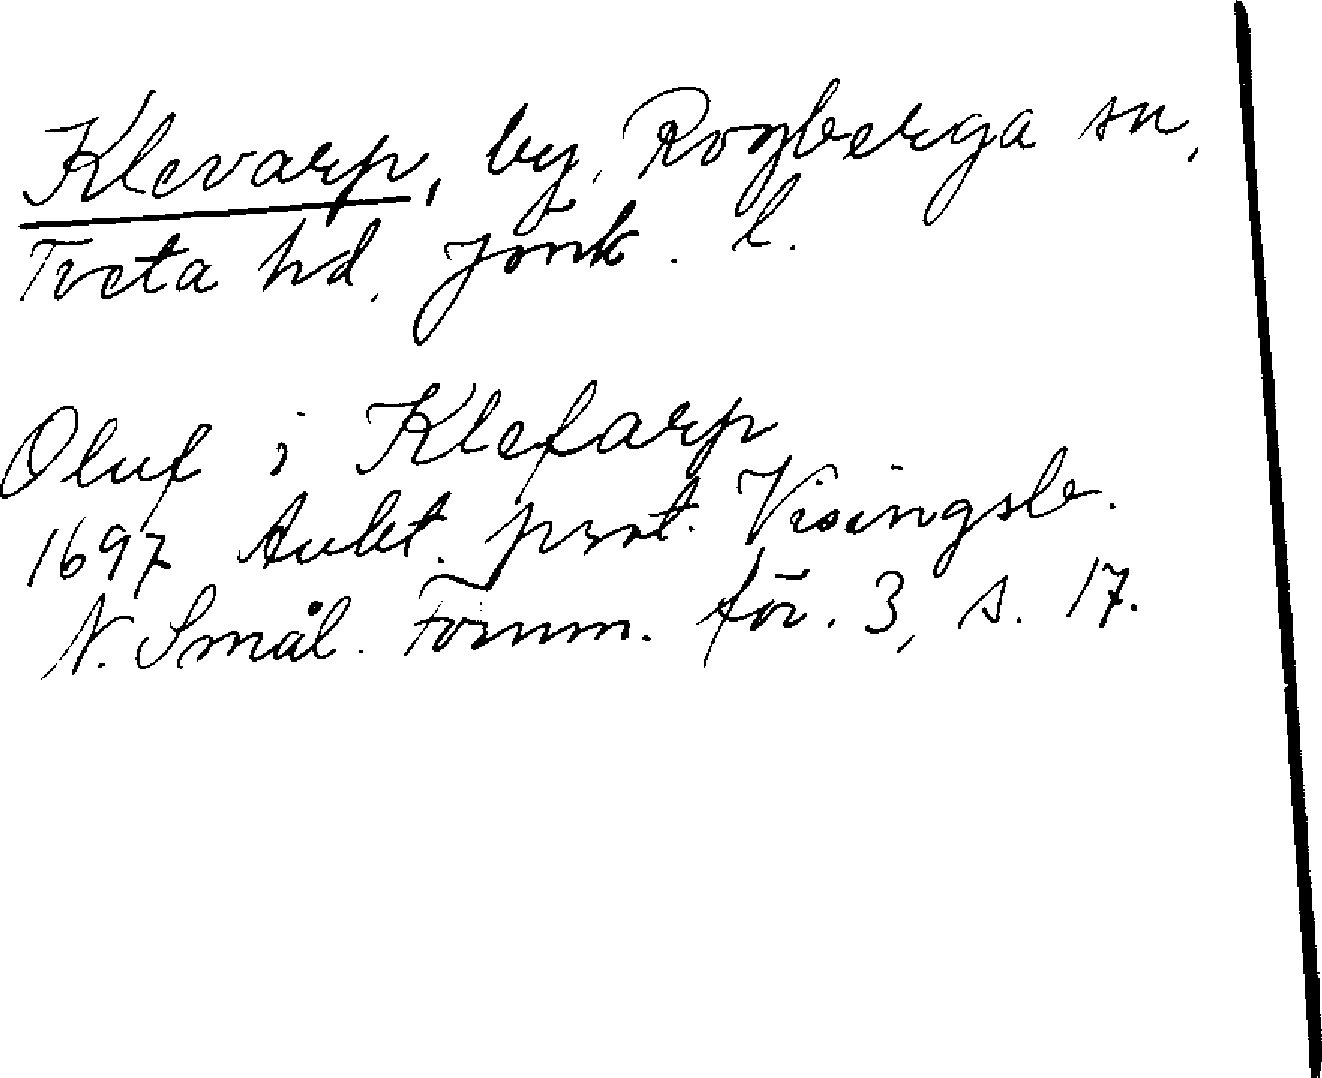 Klevarp, by, Rogberga sn,
Tveta hd, Jönk. l.
Oluf i Klefarp
1697 Aukt. prot. Visingsb.
N. Smål. Fornm. för. 3, s. 17.